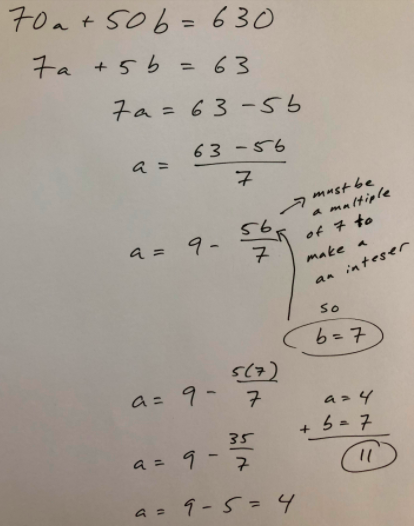 70a + 50b = 630
7a + 5b = 63
7a = 63 - 5b
a = (63 - 5b)/7
a = 9 - 5b/7
must be
a multiple
of 7 to
make a
an integer
so
b = 7
a = 9 - 5(7)/7
a = 9 - 35/7
a = 9 - 5 = 4
a = 4
+ b = 7
11